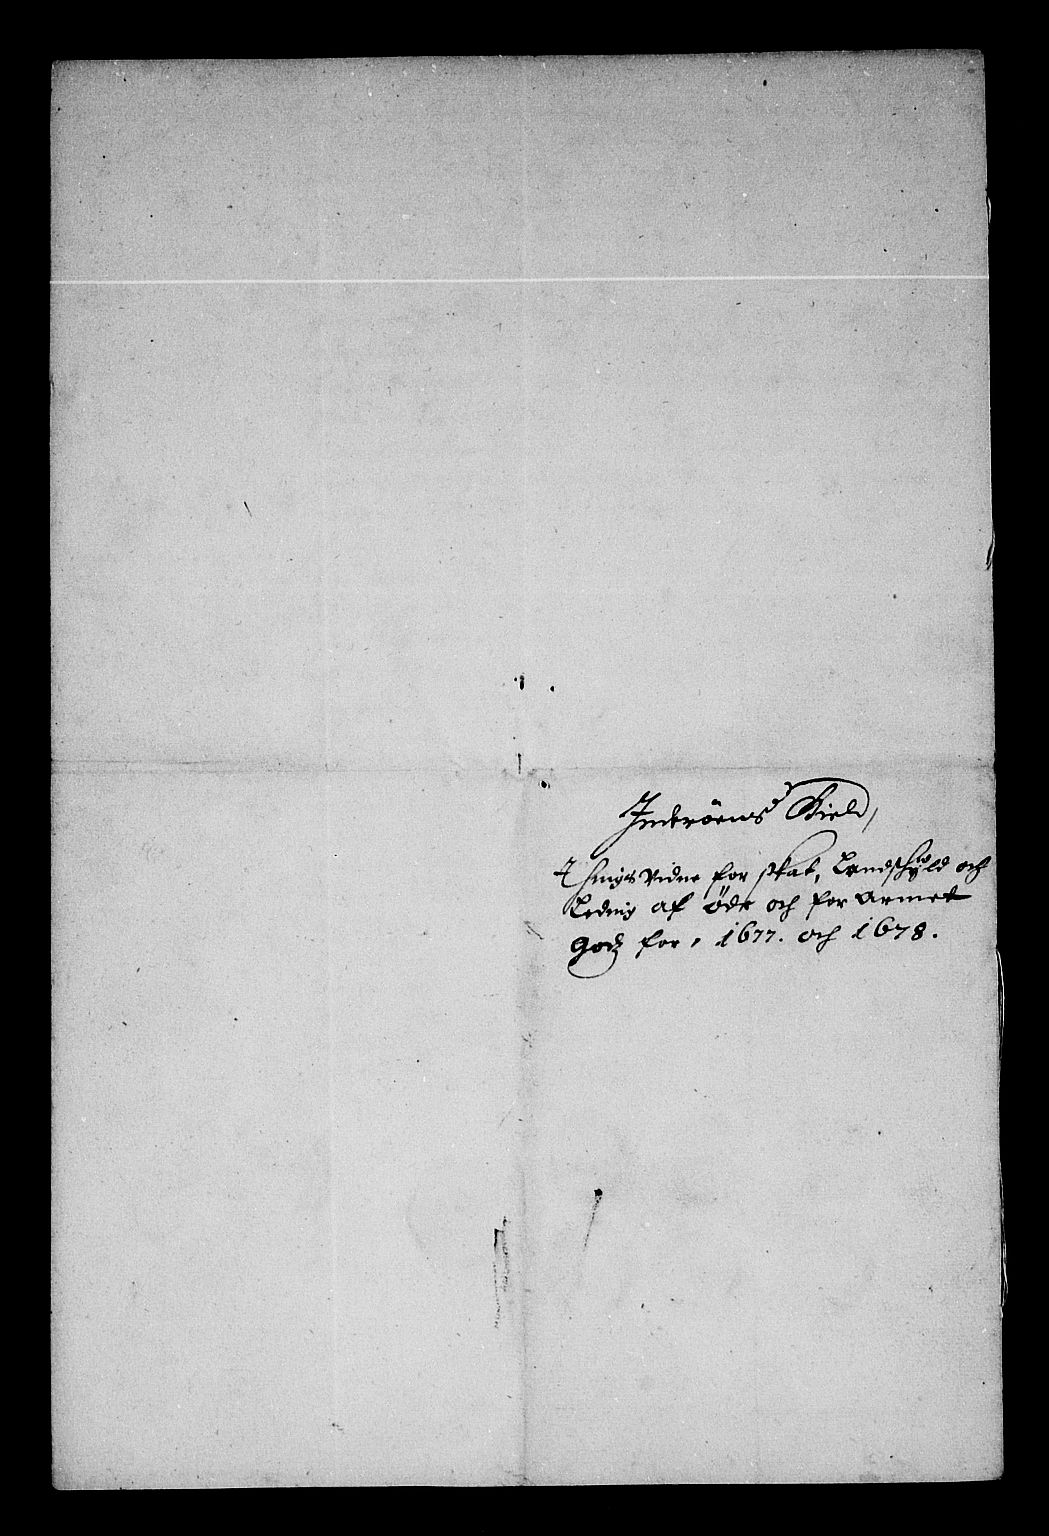 Inderøens Field,
Things Vidne for skat, Landskyld och
Leding af øde och for armet
godz for, 1677. och 1678.